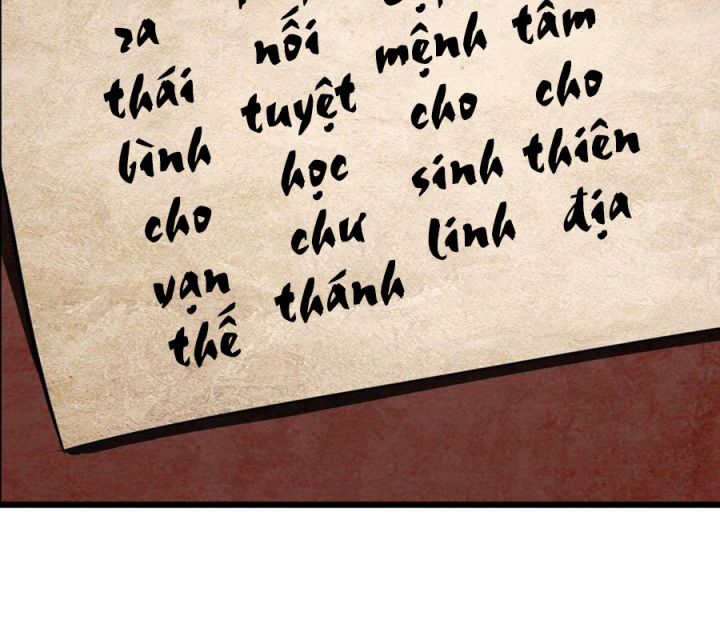 tâm cho thiên địa
mệnh cho sinh linh
nối tuyệt học chư thánh
ra thái bình cho vạn thế